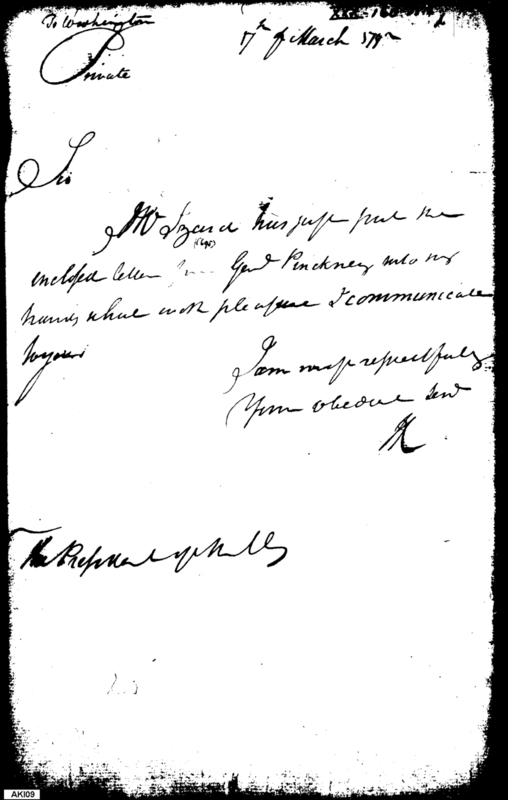 To Washington
Private
17th of March 179
Sir
Mr Izard has just put the
inclosed letter from Genl Pinckney into my
hands which with pleasure I communicate
to you
I am most respectfully
Your obedient Serv
HK
The President of the U S
AKI09